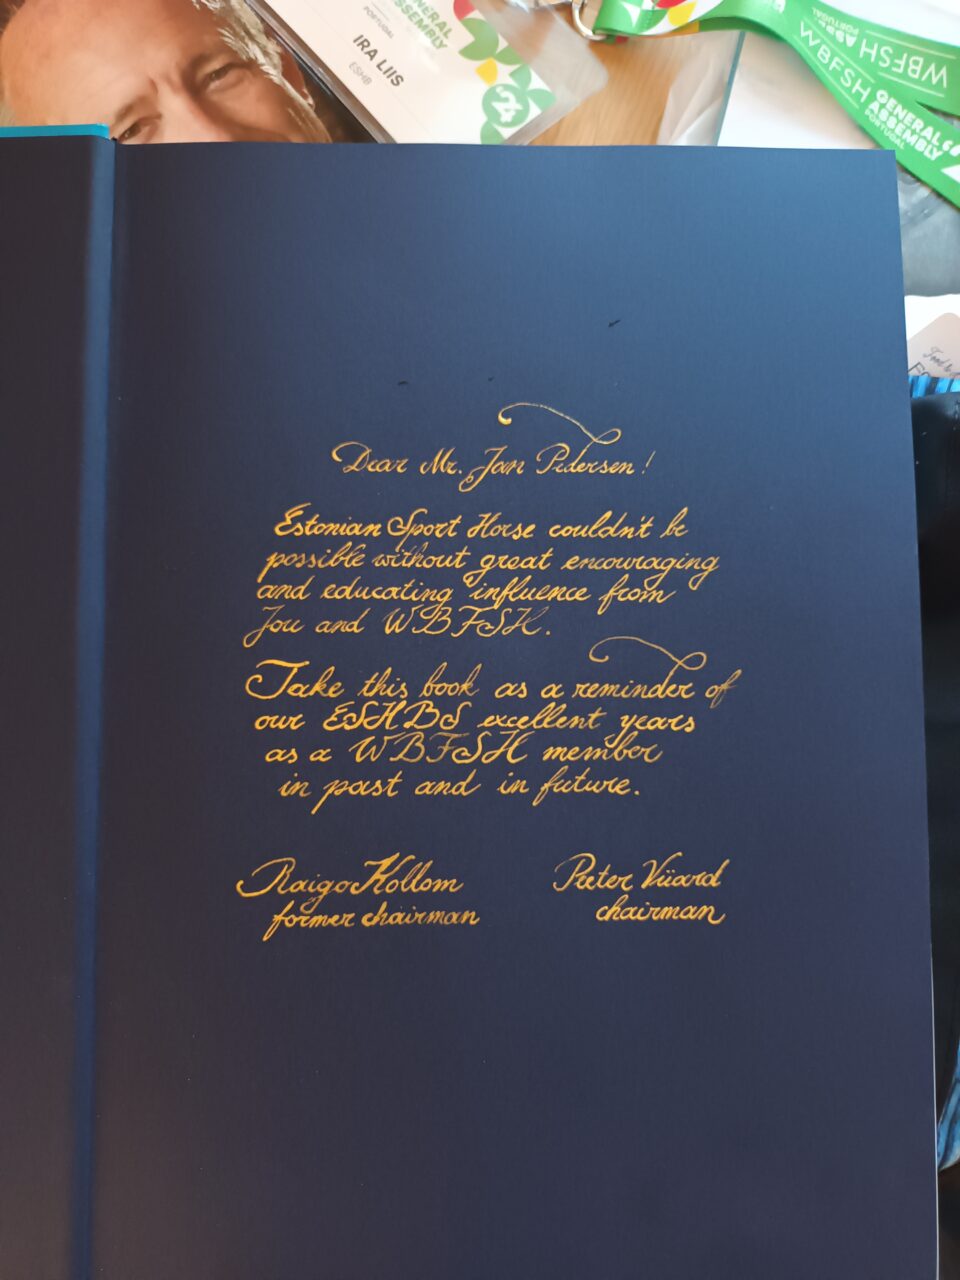 GENERAL
ASSEMBLY
PORTUGAL
IRA LIIS
ESHB
24
WBFSH
WBFSH
GENERAL
ASSEMBLY
PORTUGAL
Dear Mr. Jan Pedersen!
Estonian Sport Horse couldn't be
possible without great encouraging
and educating influence from
You and WBFSH.
Take this book as a reminder of
our ESHBS excellent years
as a WBFSH member
in past and in future.
Raigo Kollom
former chairman
Peeter Vüard
chairman